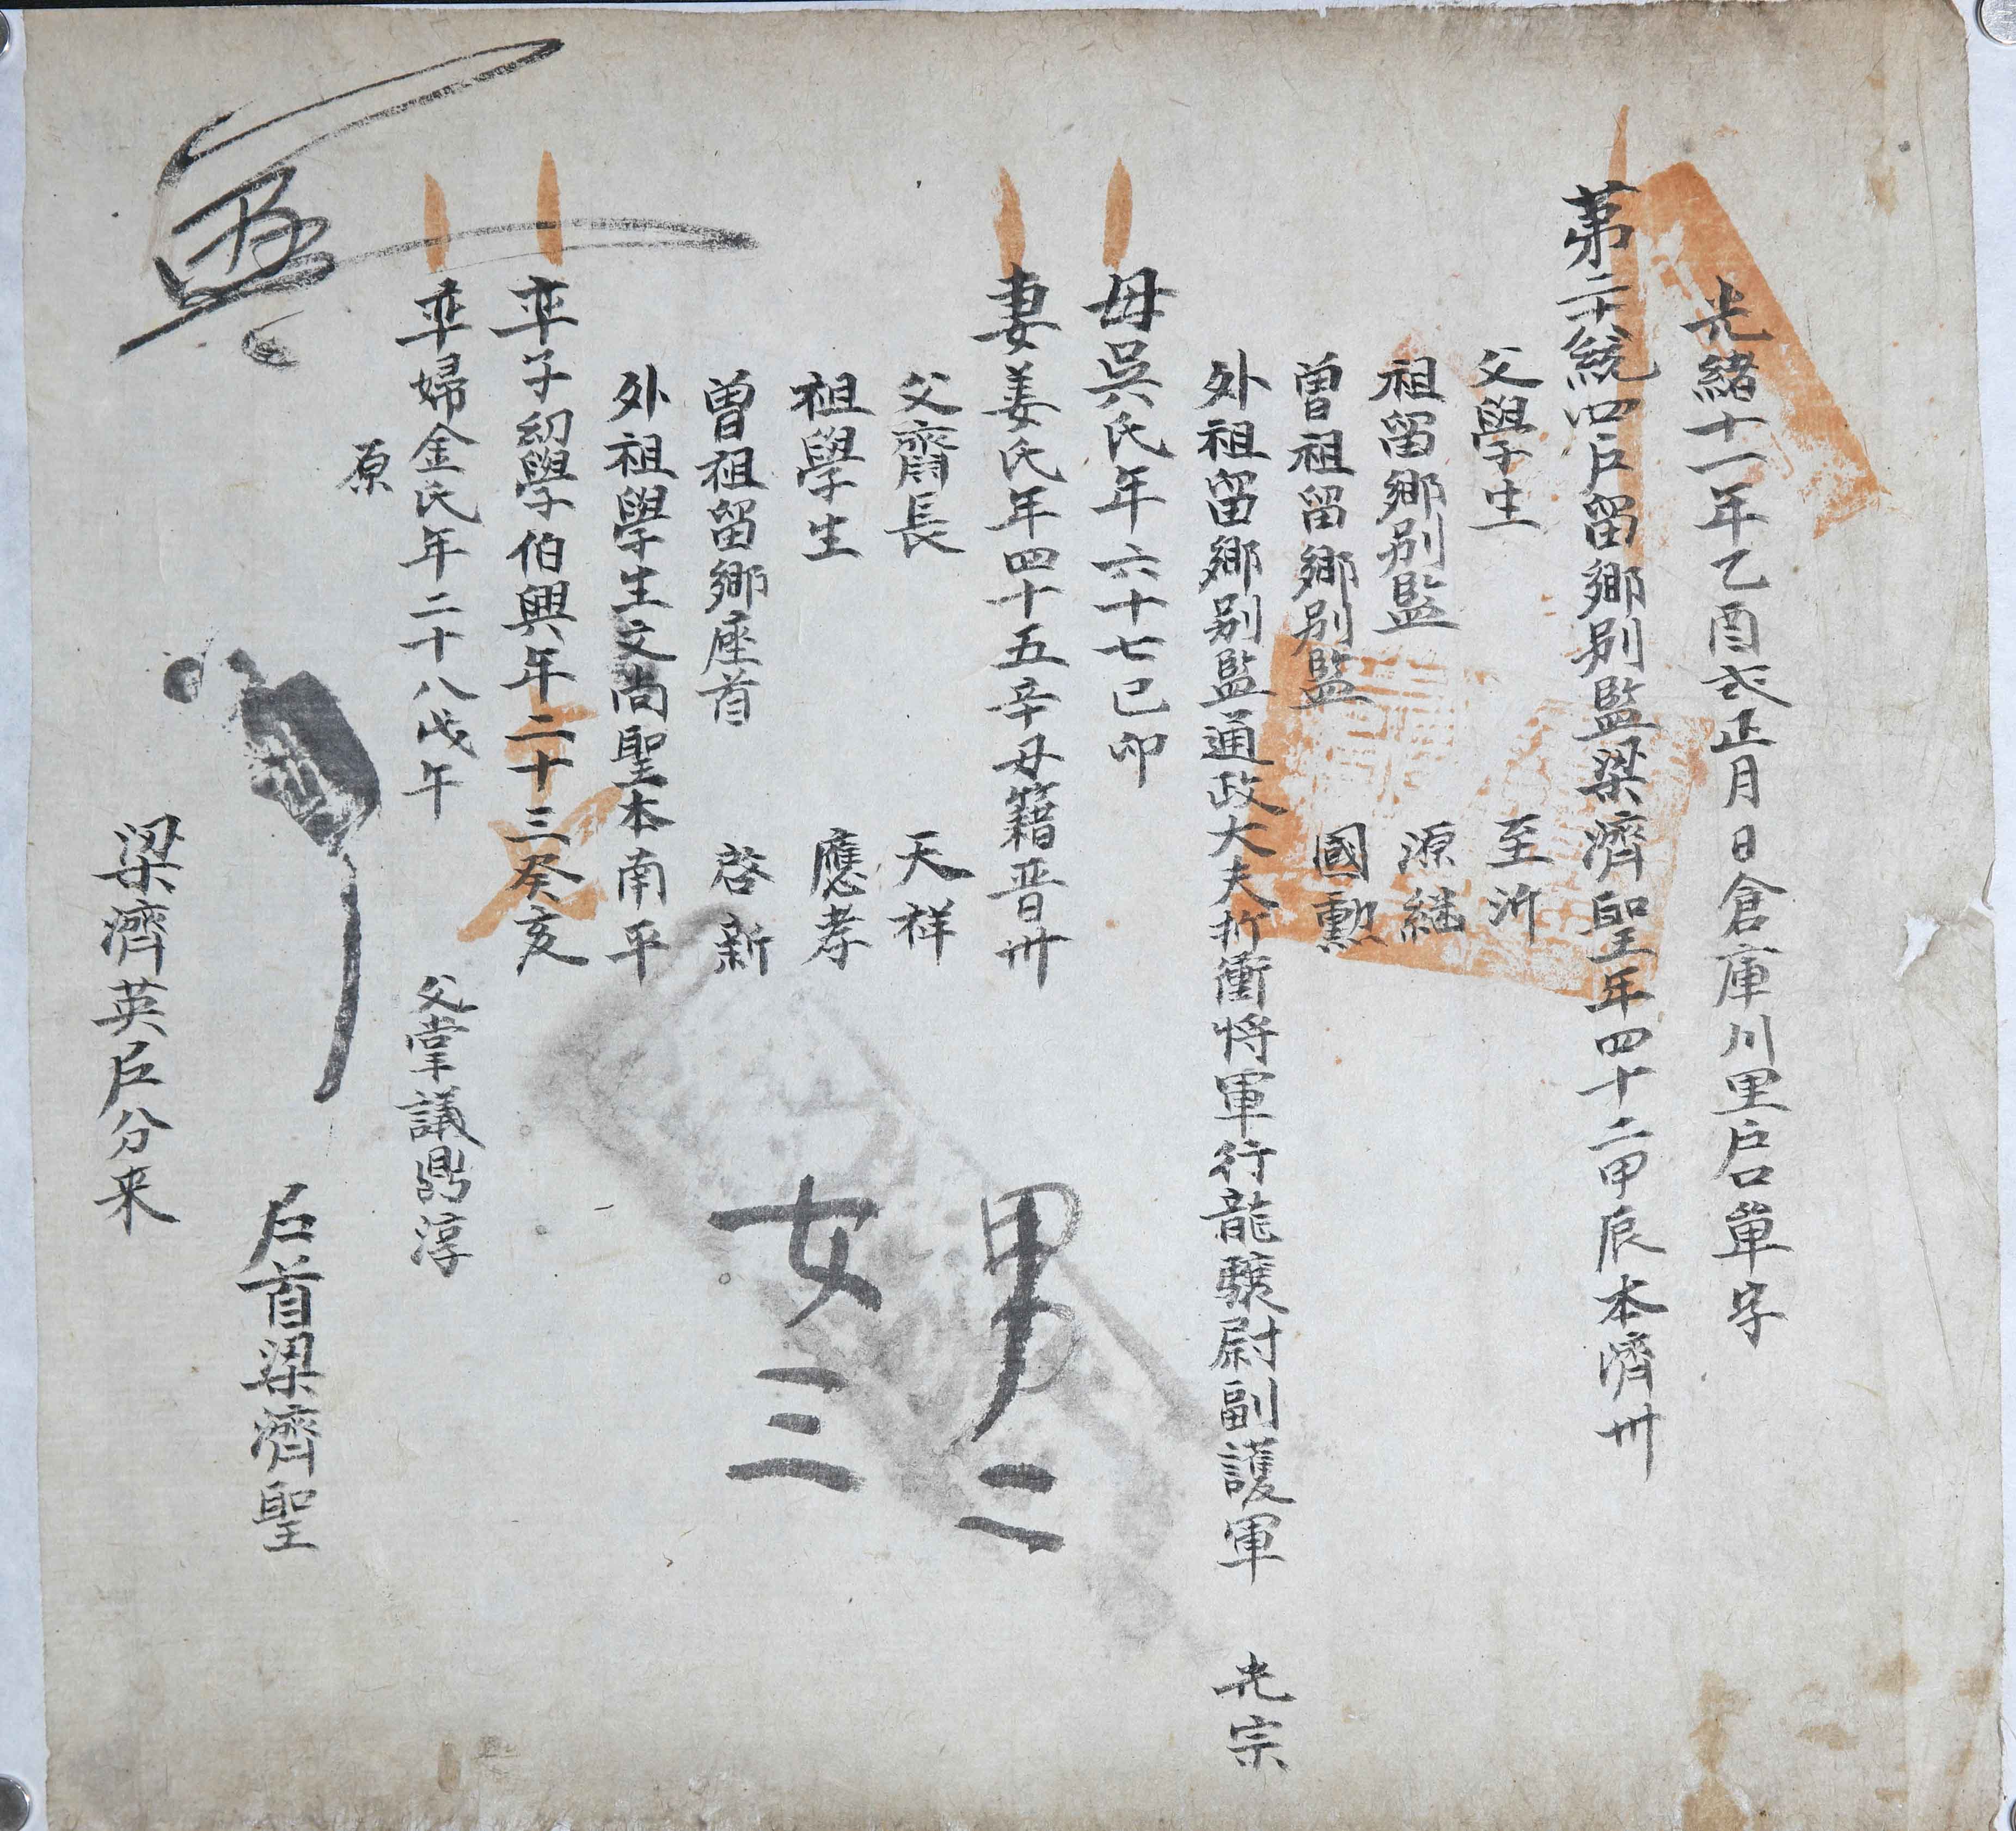 光緖十一年乙酉式正月日倉庫川里戶單子
第二十統四戶留鄕別監梁濟聖年四十二甲辰本濟卅
父學生 至沂
祖留鄕別監 源繕
曾祖留鄕別監 國勳
外祖留鄕別監通政大夫折衝將軍行龍驤尉副護軍 光宗
母吳氏年六十七己卯
妻姜氏年四十五辛丑籍晋卅
父齋長 天祥
祖學生 應孝
曾祖留鄕座首 啓新
外祖學生文尙聖本南平
率子幼學伯興年二十三癸亥
率婦金氏年二十八戊午 父掌議鼎淳
原
男二
女三
戶首梁濟聖
梁濟英戶分来